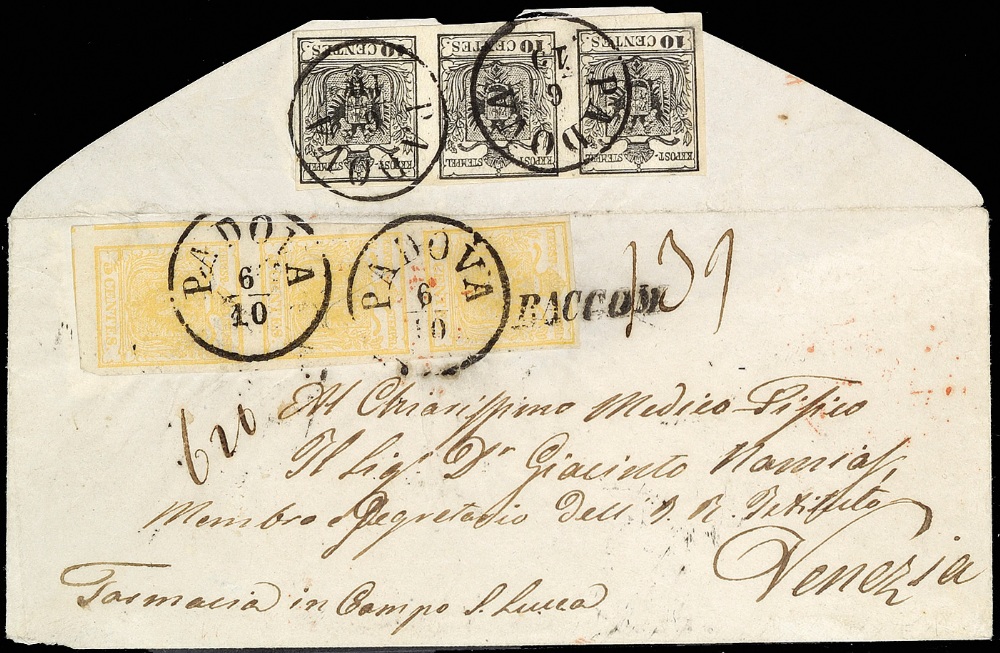 10 CENTES.
10 CENTES.
10 CENTES.
KKPOST-
STEMPEL
KKPOST-
STEMPEL
KKPOST-
STEMPEL
PADOVA
6
PADOVA
6
PADOVA
6
10
PADOVA
6
10
5 CENTES.
RACCOM
139
620
Al Chiarissimo Medico-Fisico
Il Sigr Dr Giacinto Namias
Membro e Segretario dell' I. R. Istituto
Venezia
Farmacia in Campo S. Lucca